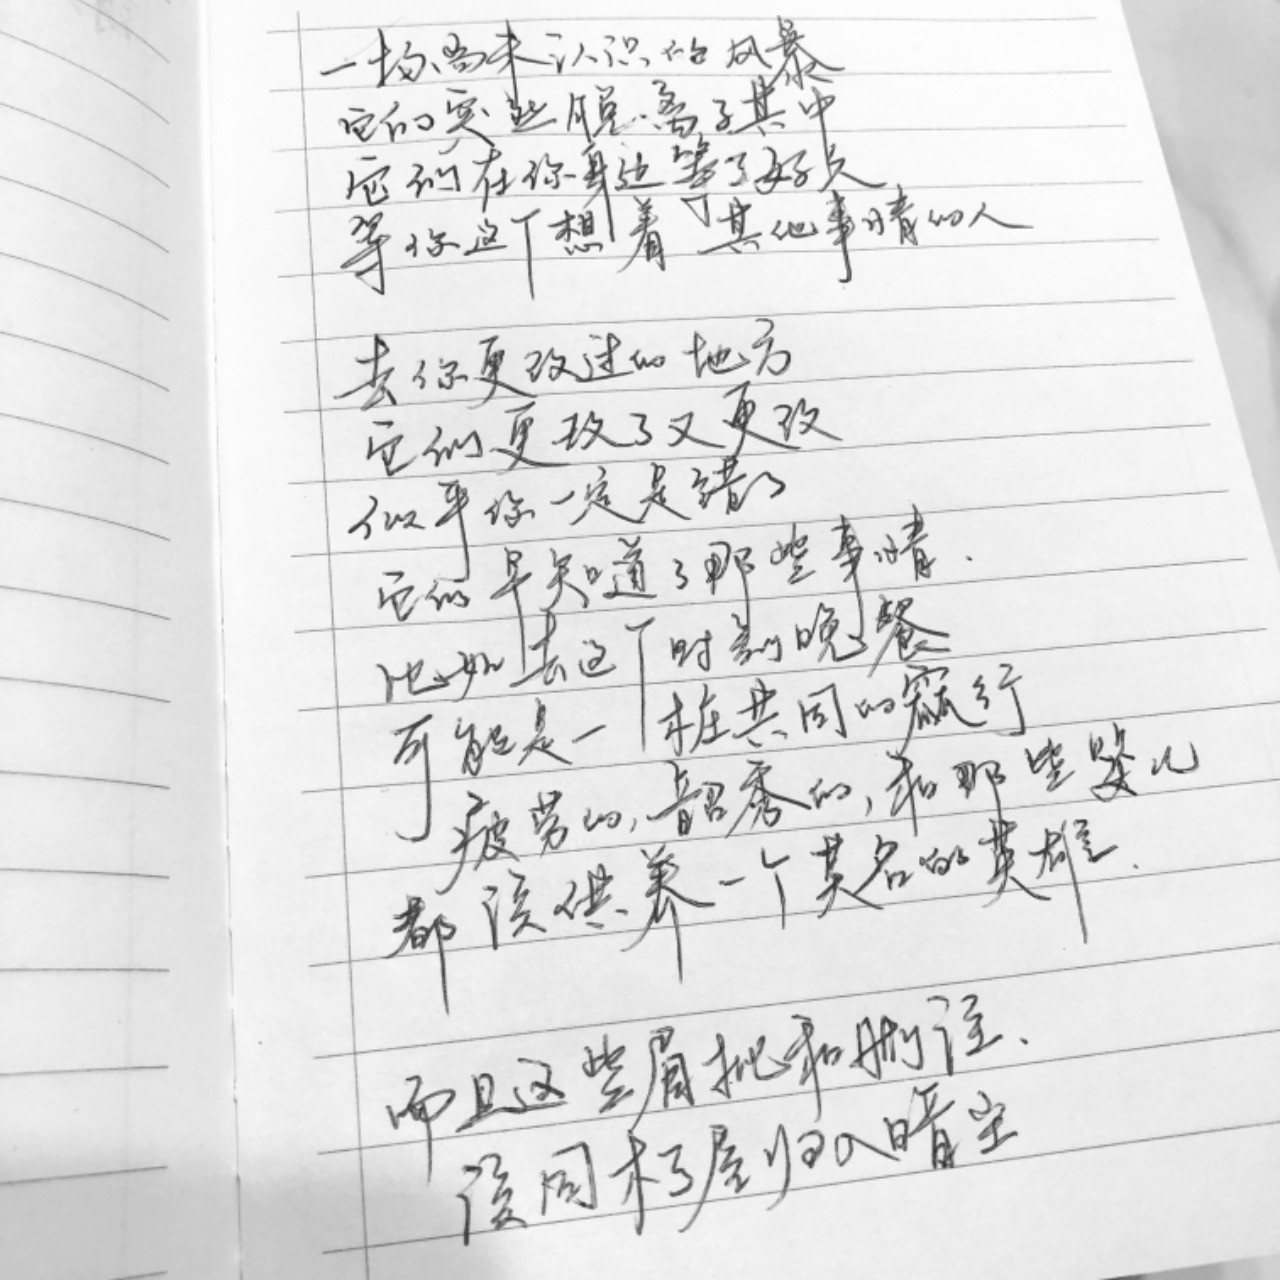 一场尚未认识的风暴
它们突然脱离了其中
它们在你身边等了好久
等你这个想着其他事情的人
去你更改过的地方
它们更改了又更改
似乎你一定是错了
它们早知道了那些事情.
比如去这个时刻晚餐
可能是一个桩共同的
疲劳的,韶秀的,和那些婴儿
都该供养一个莫名的英雄.
而且这些眉批和删注.
该同木屋归入晴空